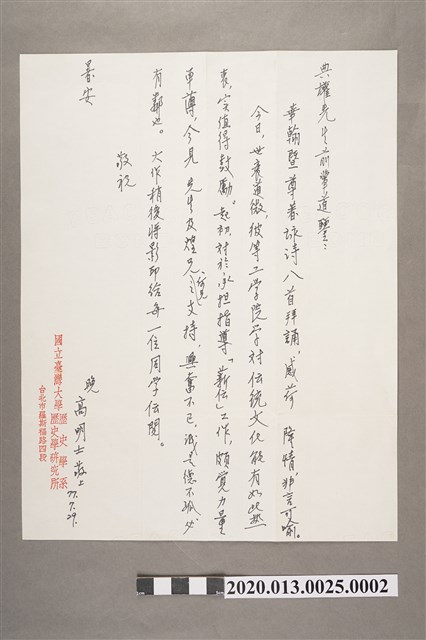 典耀先生前輩道鑒：
華翰暨尊著詠詩八首拜誦，感荷 隆情，非言可喻。
今日，世衰道微，彼等工學院學生對伝統文化能有如此熱
衷，实值得鼓勵。起初对於承担指導「薪伝」工作，頗覚力量
單薄，今見 先生及煌兄之支持，興奮不已，誠是德不孤必
有鄰也。大作稍後將影印給每一位同学伝閱。
敬祝
暑安
晚 高明士敬上
77.7.29.
國立臺灣大學歷史學系
歷史學研究所
台北市羅斯福路四段
2020.013.0025.0002